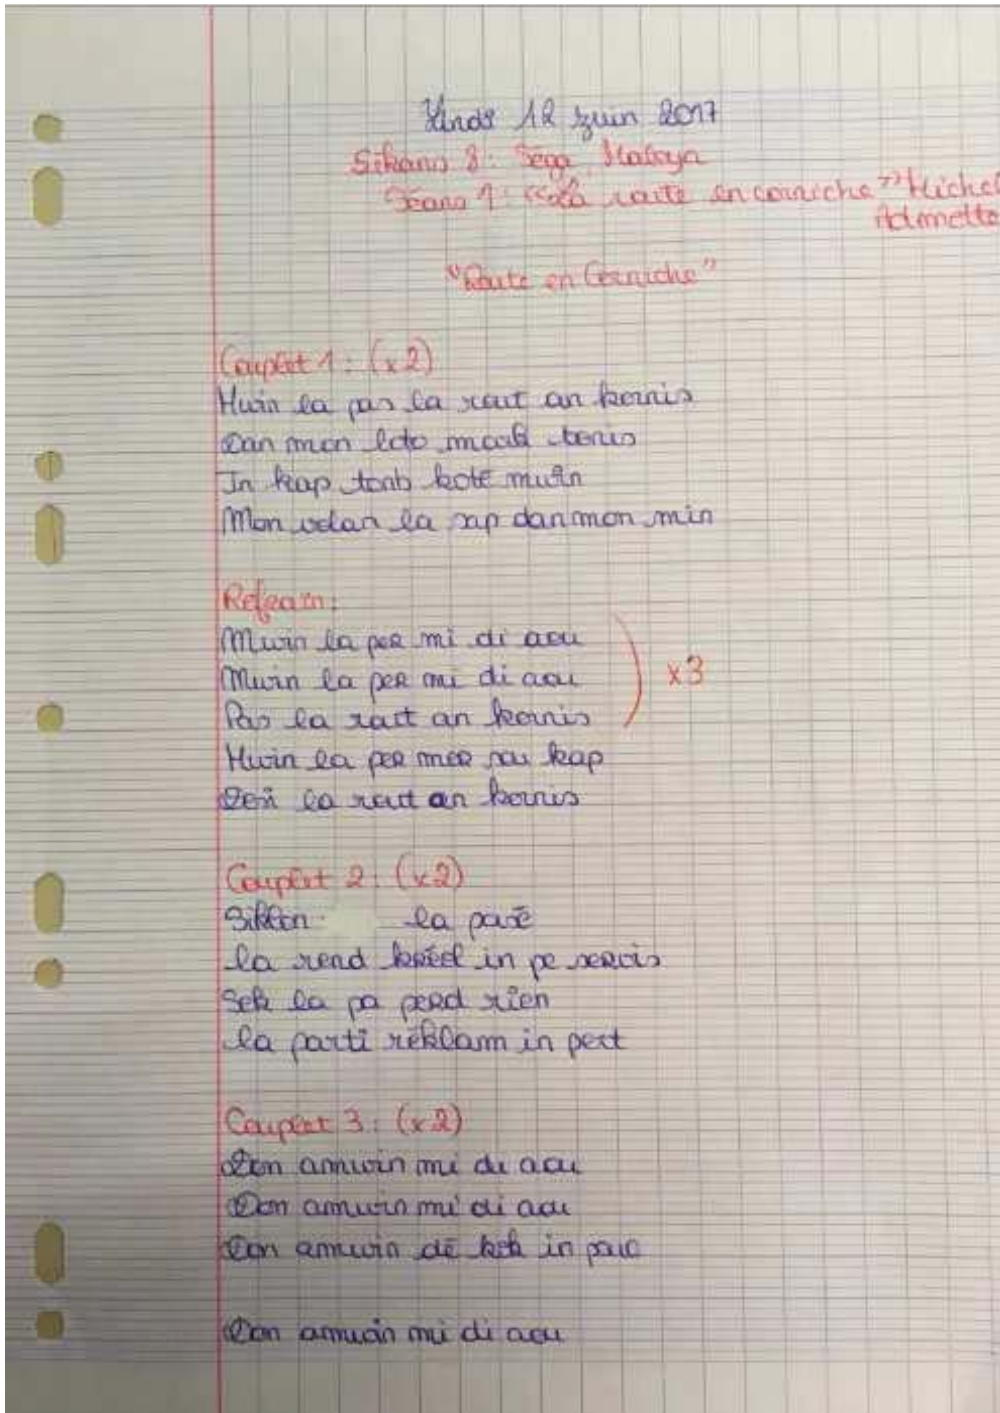 Lindi 12 zuin 2017
Sékans 3: Séga, Maloya
Séans 1: «La route en corniche» Michel
Admette
"Route en Corniche"
Couplet 1: (x2)
Mwin la pas la rout an kornis
Dan mon loto mark tonis
In kap tonb koté mwin
Mon volan la sap dan mon min
Refrain:
Mwin la per mi di aou
Mwin la per mi di aou
Pas la rout an kornis
x3
Mwin la per mer sou kap
Desi la rout an kornis
Couplet 2: (x2)
Siklon la pasé
la rend kréol in pe servis
Sek la pa perd rien
la parti réklam in pert
Couplet 3: (x2)
Don amwin mi di aou
Don amwin mi di aou
Don amwin dé kok in poul
Don amwin mi di aou